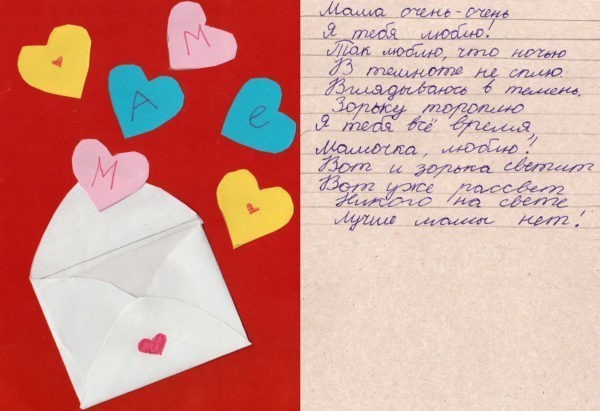 М
А
е
М
Мама очень-очень
Я тебя люблю!
Так люблю, что ночью
В темноте не сплю.
Вглядываюсь в темень,
Зорьку тороплю
Я тебя всё время,
Мамочка, люблю!
Вот и зорька светит
Вот уже рассвет
Никого на свете
Лучше мамы нет!